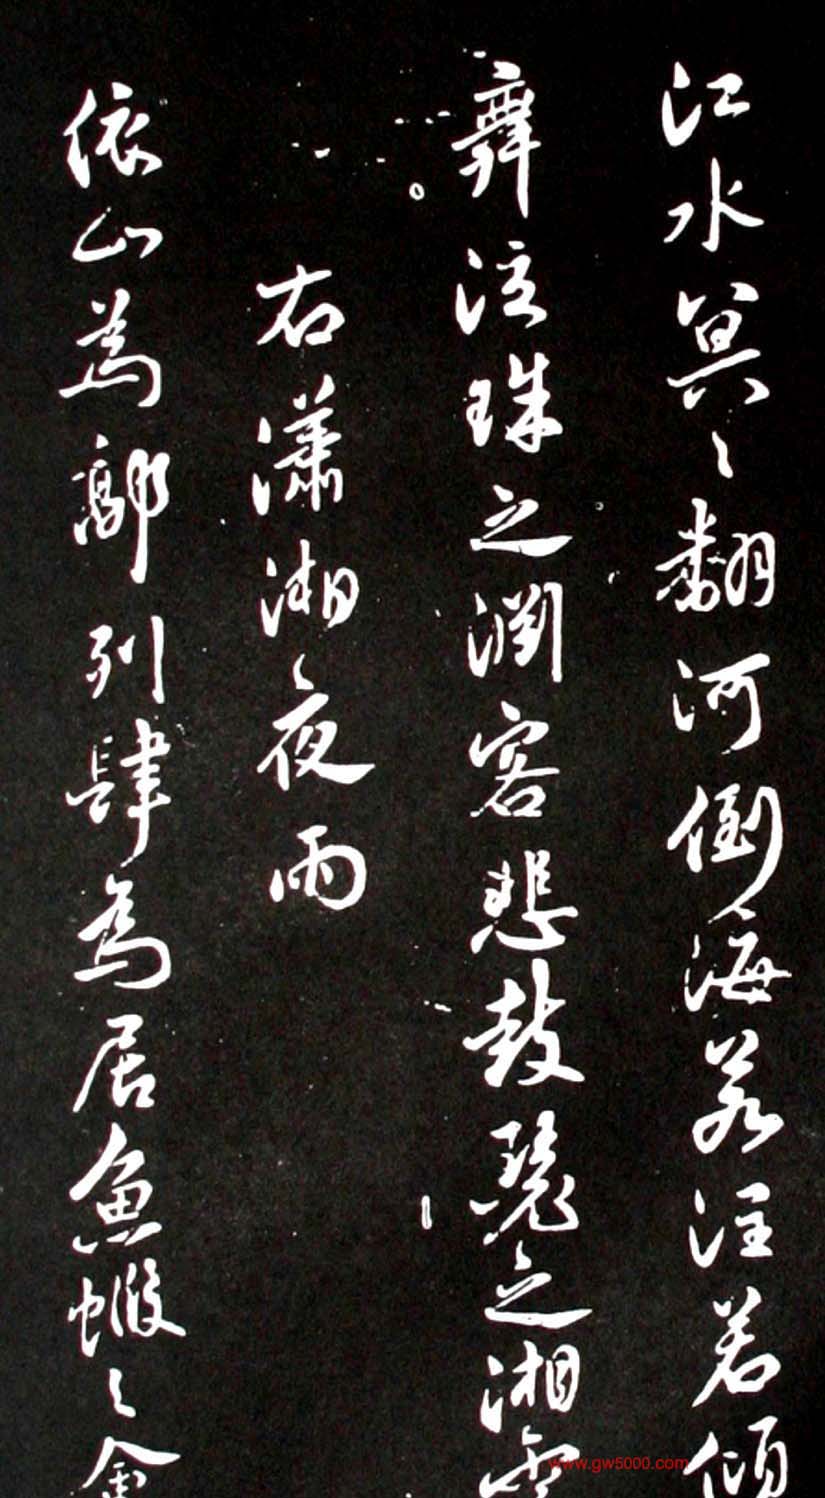 江水冥〻翻河倒海若注若傾
舞泣珠之淵客悲鼓瑟之湘靈
右瀟湘夜雨
依山為郭列肆為居魚蝦之會
www.gw5000.com